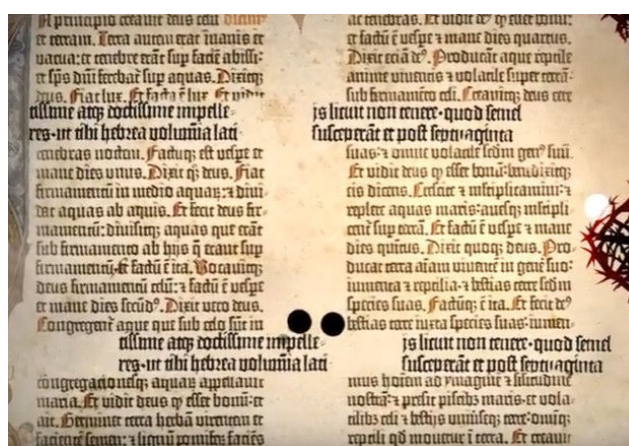 N principio creavit deus celū
et terram. Terra autem erat inanis et
vacua: et tenebre erāt sup faciē abissi:
et sp̄s dn̄i ferebat sup aquas. Dixitq;
deus. Fiat lux. Et facta ē lux. Et vidit
tissime atq; doctissime impelle-
res·ut tibi hebrea volumia lati
tenebras noctem. Factuq; est vespe et
mane dies unus. Dixit q; deus. Fiat
firmamentū in medio aquar: et divi-
dat aquas ab aquis. Et fecit deus fir-
mamentū: divisitq; aquas que erāt
sub firmamento ab hijs q̄ erant sup
firmamentū. Et factū ē ita. Vocavitq;
deus firmamentū celū: et factū ē vespe
et mane dies secūd9. Dixit vero deus.
Congregent aque que sub celo sūt in
tissime atq; doctissime impelle-
res·ut tibi hebrea volumia lati
congregationesq; aquar appellavit
maria. Et vidit deus q esset bonū: et
ait. Germinet terra herbā virentem et
facientē semen: et lignū pomifer faciēs
ac tenebras. Et vidit de9 q esset bonū:
et factū ē vespe et mane dies quartus.
Dixit eciā de9. Producāt aque reptile
anime viventis et volatile super terrā:
sub firmamento celi. Creavitq; deus cete
js licuit non tenere·quod semel
susceperāt et post septuaginta
suas: et omne volatile scdm gen9 suū.
Et vidit deus q esset bonū: benedixitq;
eis dicens. Crescite et mltiplicamini: et
replete aquas maris: avesq; mltipli-
cent sup terrā. Et factū ē vespe et mane
dies quintus. Dixit quoq; deus. Pro-
ducat terra aiam viventē in gene suo:
iumenta et reptilia: et bestias terre scdm
species suas. Factūq; ē ita. Et fecit de9
bestias terre iuxta species suas: iumen-
js licuit non tenere·quod semel
susceperāt et post septuaginta
mus hoiem ad ymaginē et silitudinē
nostrā: et presit piscib3 maris: et vola-
tilib3 celi et bestijs
reptili qd movetur ī terra. Et creavit